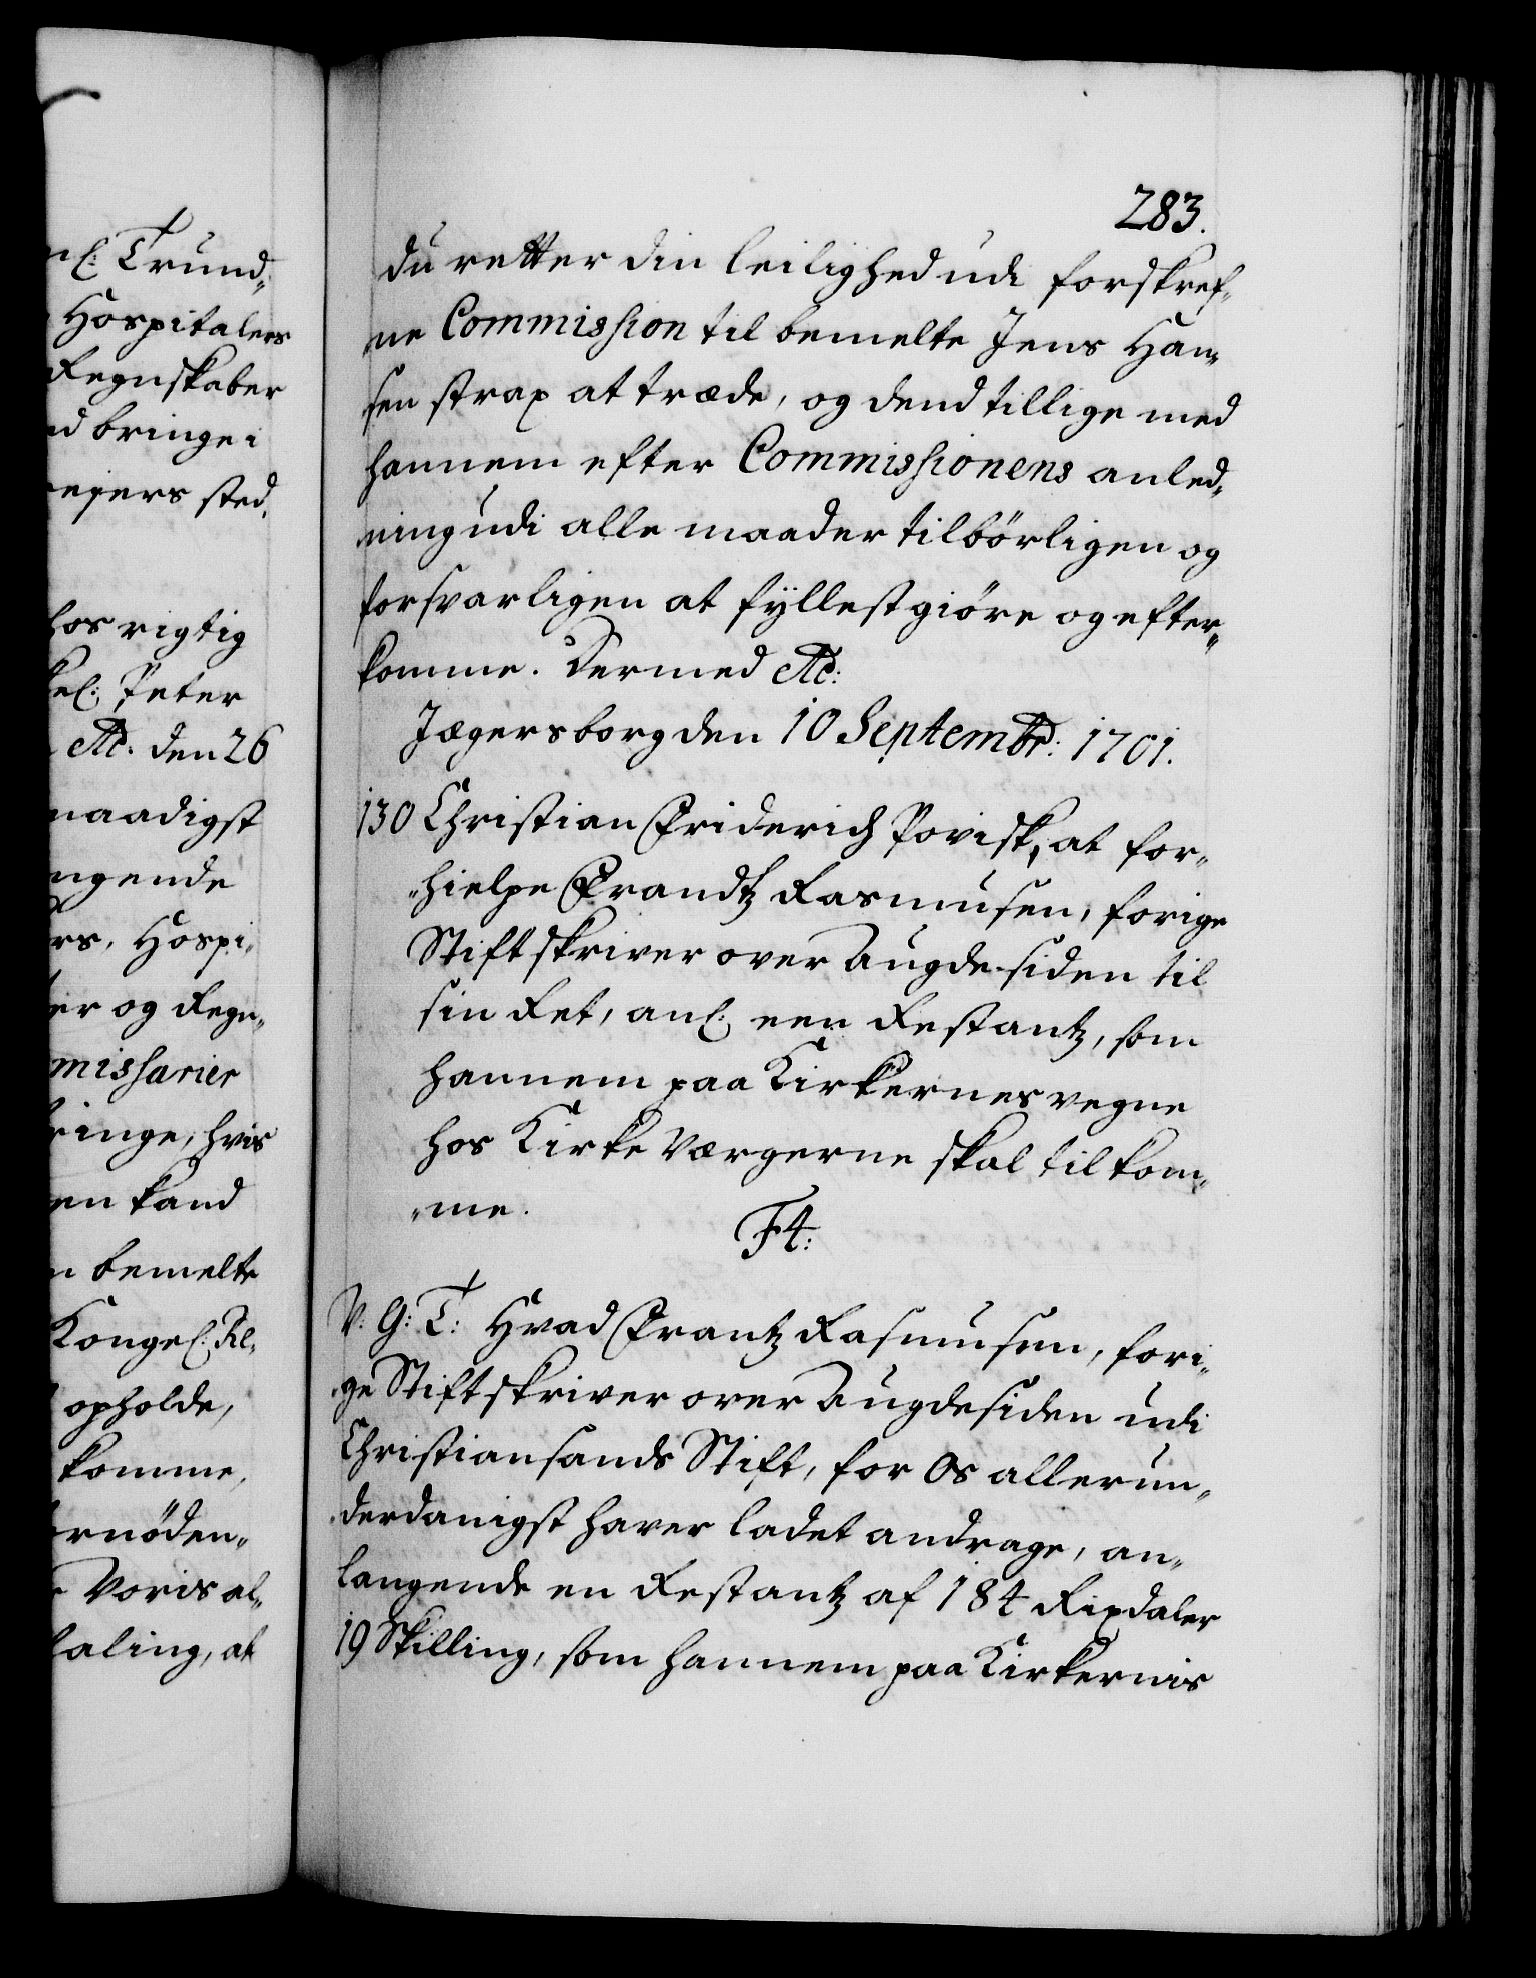 nl: Trund„
Hospitalers
Regnskaber
nd bringe i
rejers sted.
hos rigtig
kel: Peter
etc. den 26
naadigst
ngende
rs, Hospi„
er og Regn„
missarier
ringe, hvis
en kand
n bemelte
Kongel: Re„
opholde,
komme,
rnöden„
Voris al„
faling, at
283.
du retter din leilighed udi forskref„
ne Commission til bemelte Jens Han„
sen strax at træde, og dend tillige med
hannem efter Commissionens anled„
ning udi alle maader tilbörligen og
forsvarligen at fyllestgiöre og efter„
komme. Dermed etc:
Jægersborg den 10 Septembr: 1701.
130 Christian Friderich Povisk, at for„
„hielpe Frandtz Rasmusen, forige
Stiftskriver over Augdesiden til
sin Ret, anl: een Restantz, som
hannem paa Kirkernes vegne
hos Kirke Værgerne skal tilkom„
„me.
F4:
V: G: T: Hvad Frantz Rasmusen, fori„
ge Stiftskriver over Augdesiden udi
Christiansands Stift, for Os allerun„
derdanigst haver ladet andrage, an„
langende en Restantz af 184 Rixdaler
19 Skilling, som hannem paa Kirkernis